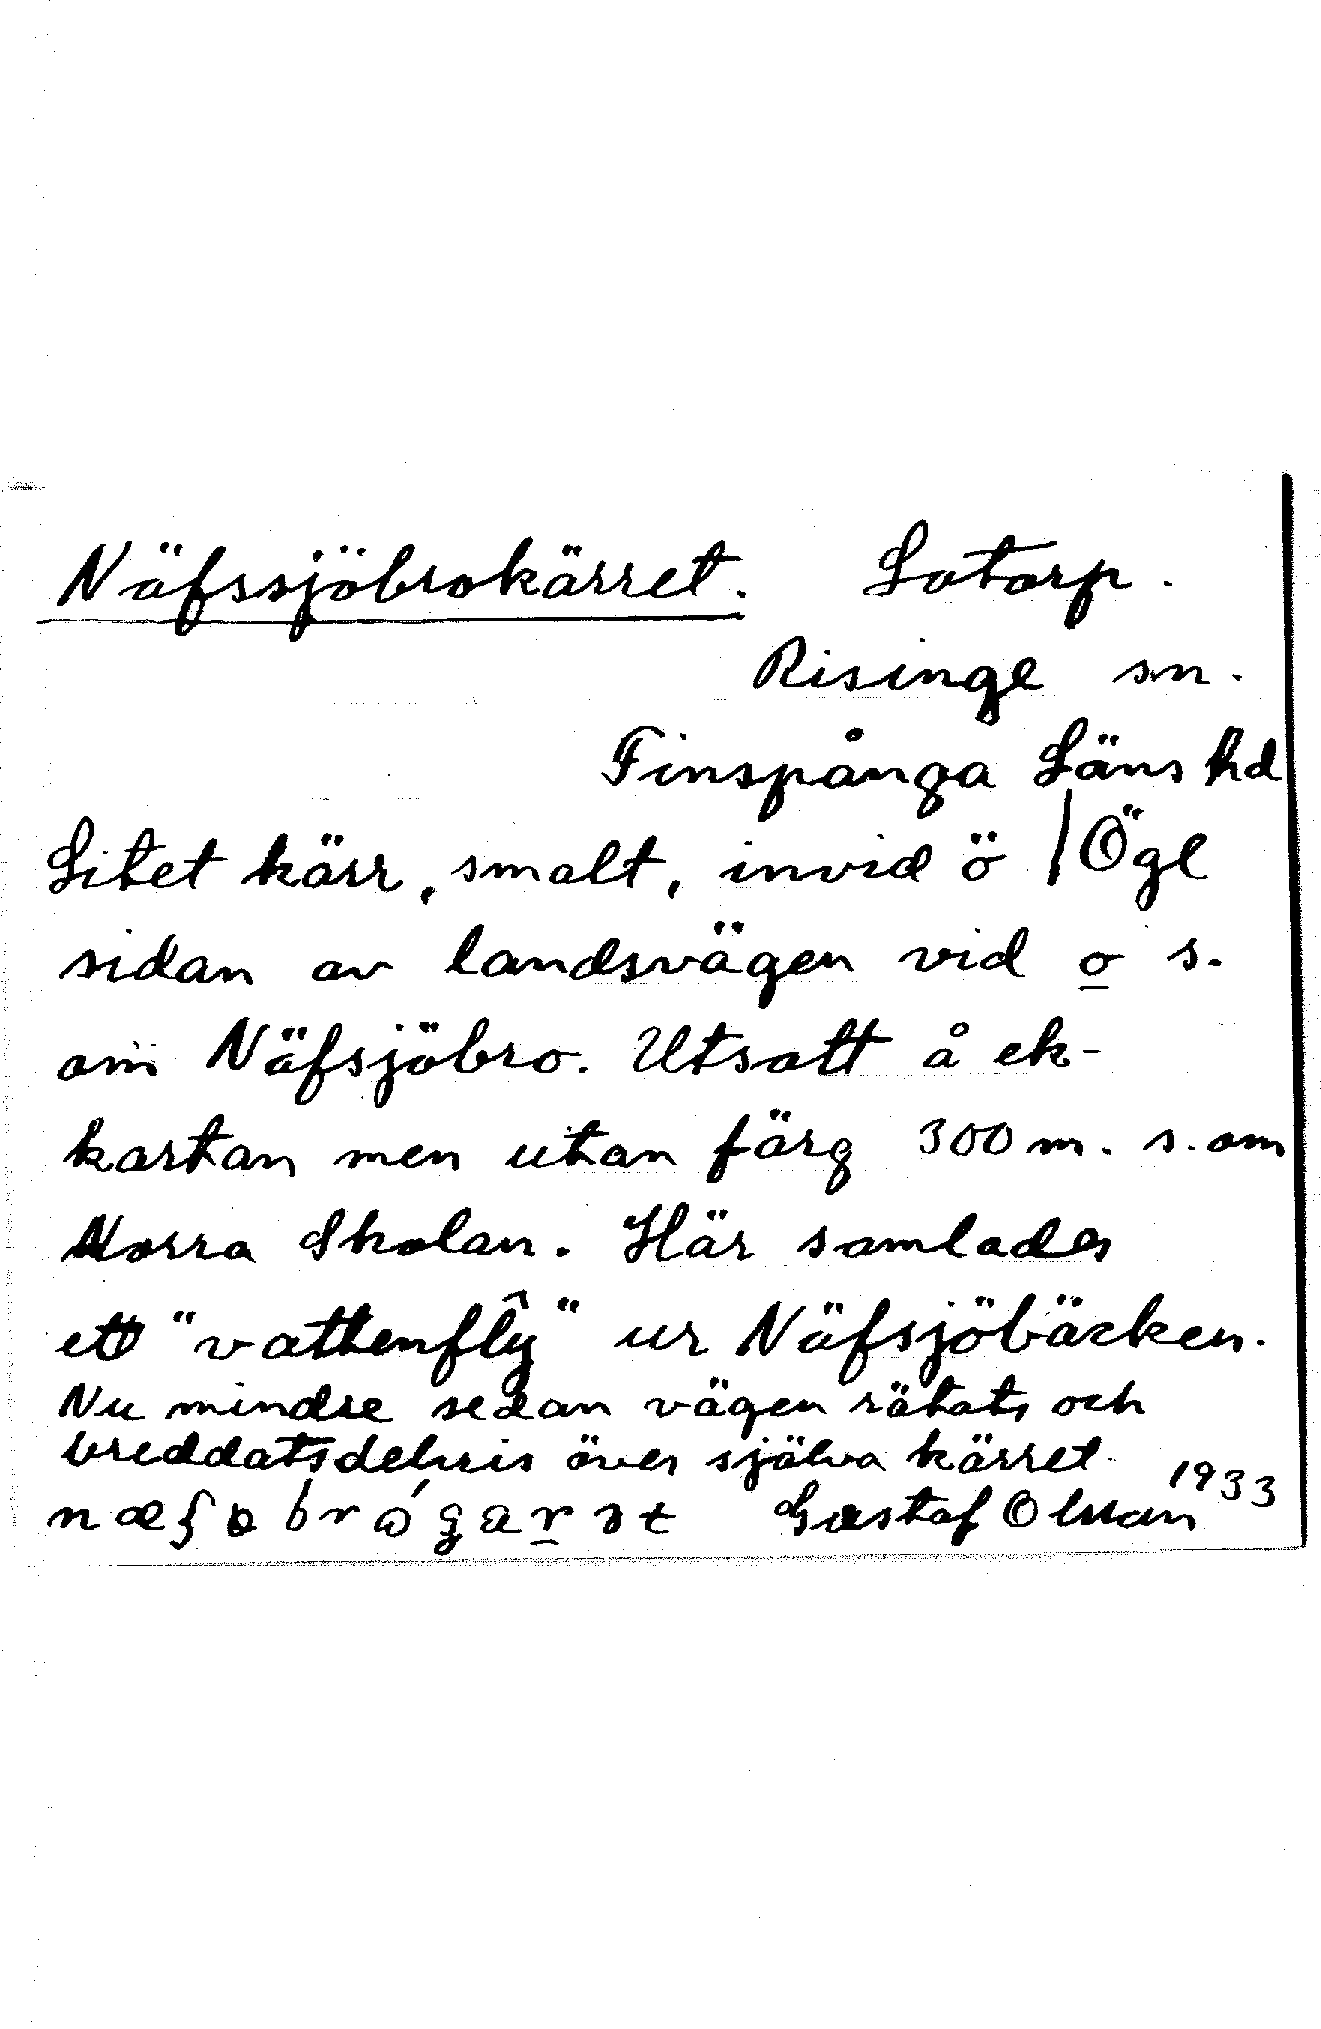 Näfssjöbrokärret. Lotorp.
Risinge sn.
Finspånga Läns hd
Litet kärr, smalt, invid ö / Ögl
sidan av landsvägen vid o s.
om Näfsjöbro. Utsatt å ek-
kartan men utan färg 300 m. s. om
Norra Skolan. Här samlades
ett "vattenflÿ" ur Näfsjöbäcken.
Nu mindre sedan vägen rätats och
breddats delvis över själva kärret.
1933
Gustaf Olsson